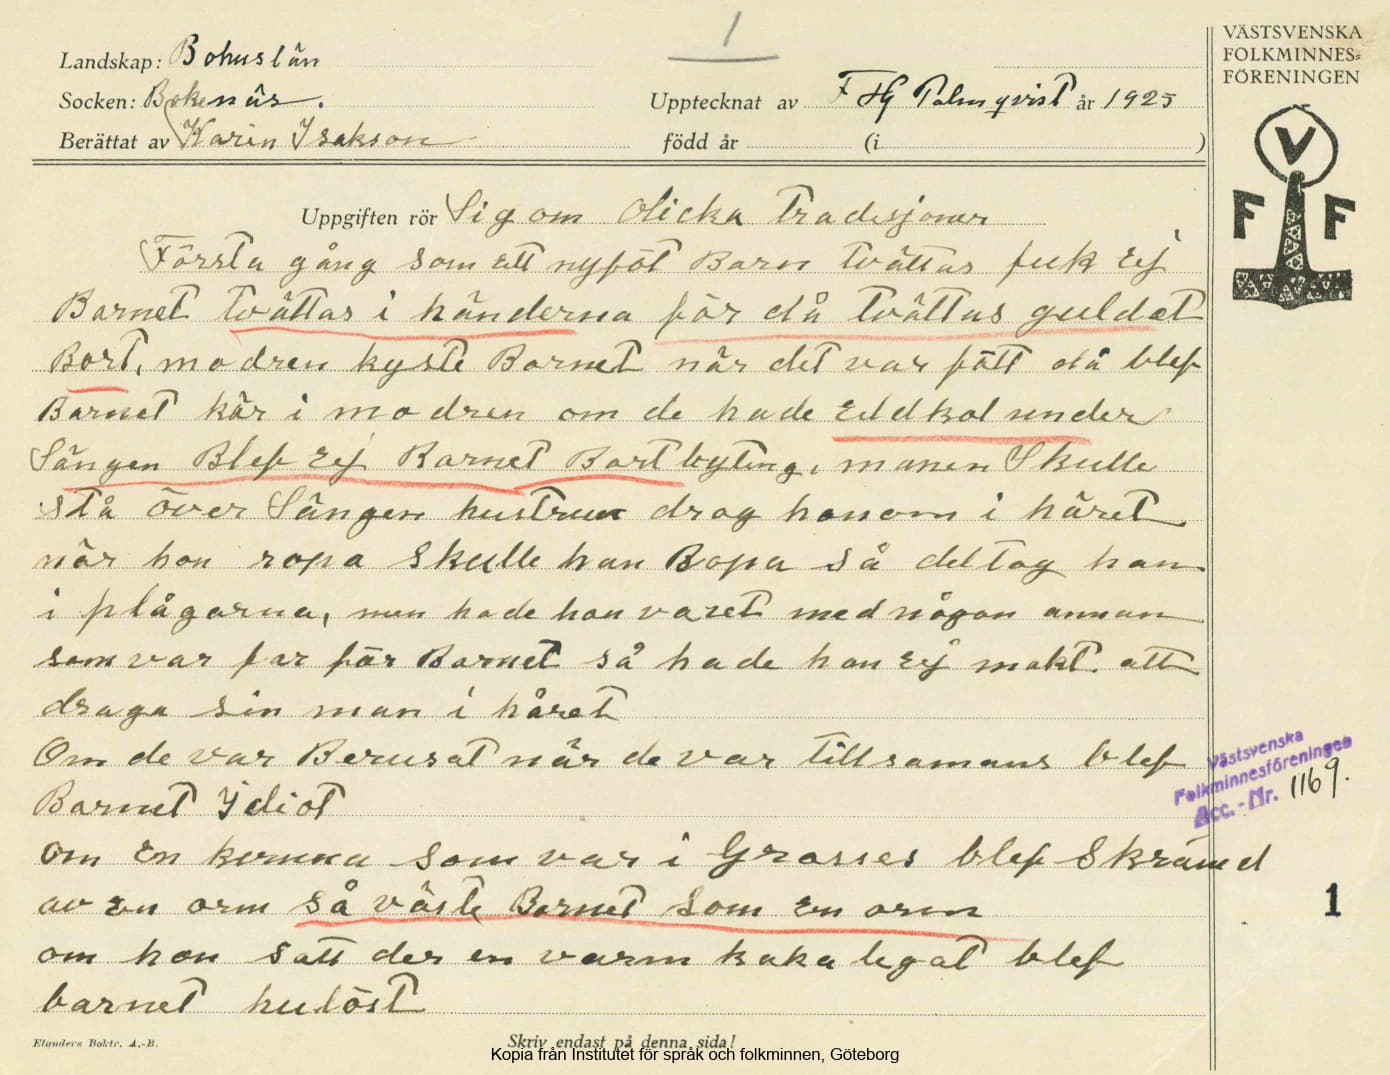 1
VÄSTSVENSKA
FOLKMINNES-
FÖRENINGEN
V
F F
Landskap: Bohuslän
Socken: Bokenäs.
Upptecknat av F Hj Palmqvist år 1925
Berättat av Karin Isakson
född år (i )
Uppgiften rör Sig om Olicka Tradisjoner
Första gång som Ett nyföt Barn tvättas feck Ej
Barnet tvättas i händerna för då tvättas guldet
Bort, modren kyste Barnet när det var fött då blef
Barnet kär i modren om de hade Eldkol under
Sängen Blef Ej Barnet Bortbyting, manen Skulle
stå över Sängen hustrun drog honom i håret
när hon ropa skulle han Ropa så deltog han
i plågorna, men hade hon varet med någon annan
som var far för Barnet så hade hon Ej makt att
draga sin man i håret
Om de var Berusat när de var tillsamans blef
Barnet Idiot
om En kvinna som var i Grosses blef Skrämd
av En orm så väste Barnet som En orm
om hon satt der en varm kaka legat blef
barnet hulöst
Västsvenska
Folkminnesföreningen
Acc.-Nr. 1169.
1
Elanders Boktr. A.-B.
Skriv endast på denna sida!
Kopia från Institutet för språk och folkminnen, Göteborg